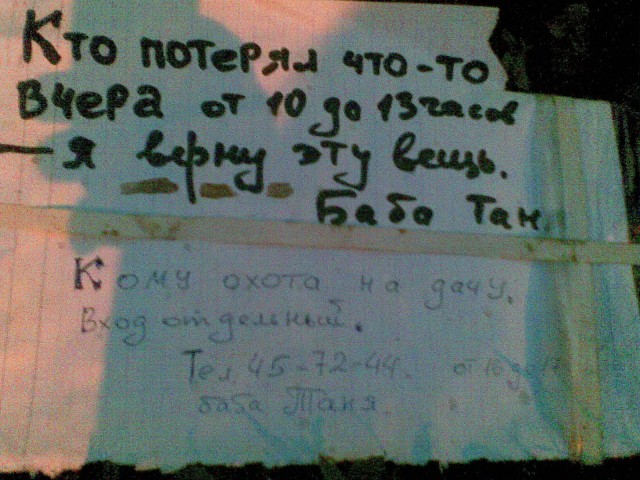 Кто потерял что-то
вчера от 10 до 13 часов
— я верну эту вещь.
Баба Тан
Кому охота на дачу.
Вход отдельный.
Тел. 45-72-44. от 16 до
баба Таня.